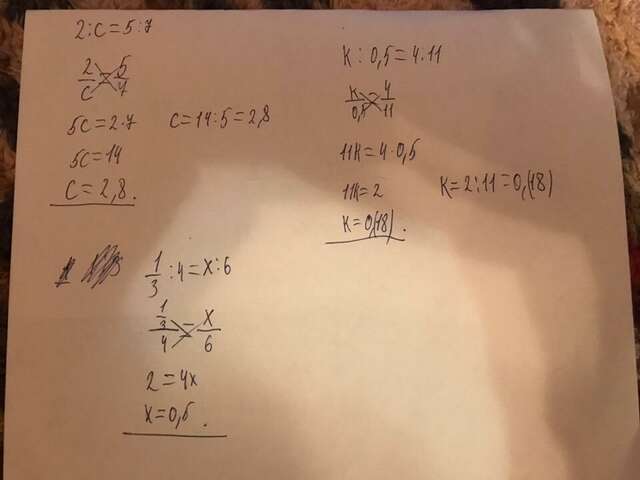 2:c=5:7
2/c=5/7
5c=2·7 c=14:5=2,8
5c=14
c=2,8.
k:0,5=4:11
k/0,5=4/11
11k=4·0,5
11k=2 k=2:11=0,(18)
k=0,(18).
1/3:4=x:6
1/3/4=x/6
2=4x
x=0,5.